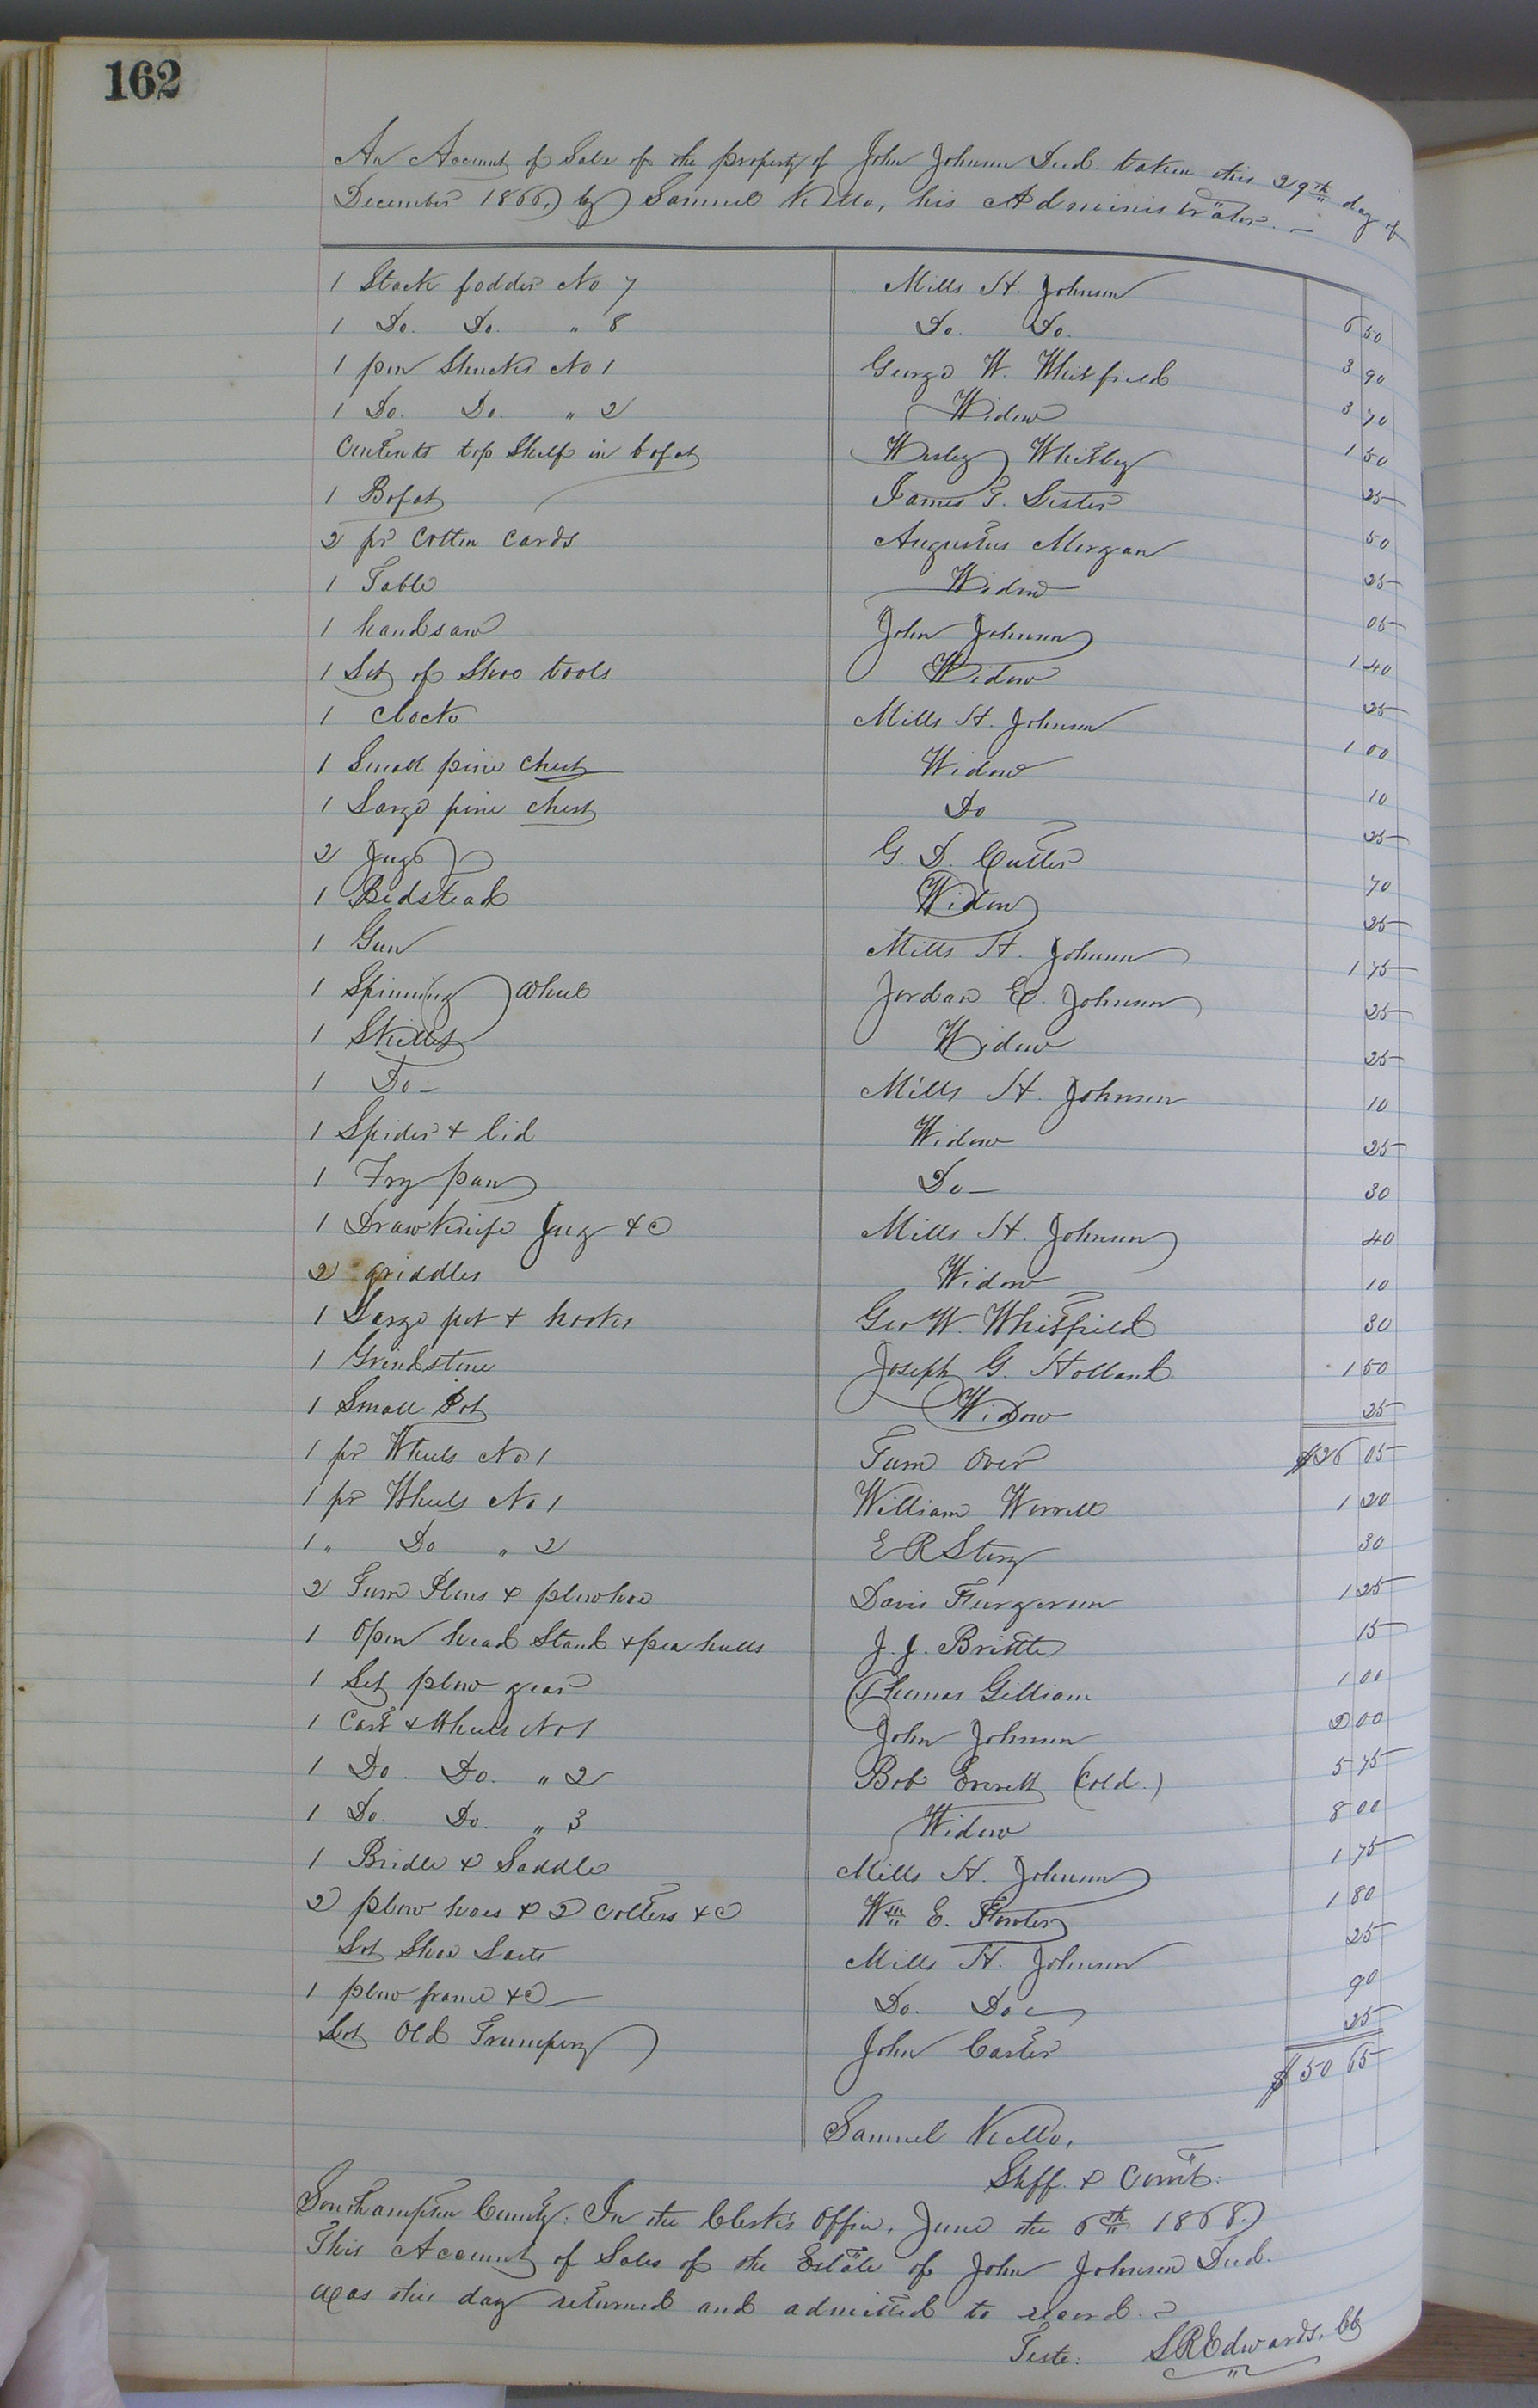 162
An Account of Sale of the property of John Johnson Decd. taken this 29th day of
December 1866, by Samuel Kello, his Administrator. —
1 Stack fodder No 7 Mills H. Johnson 6 50
1 Do. Do. " 8 Do. Do. 3 90
1 pen Shucks No 1 George W. Whitfield 3 70
1 Do. Do. " 2 Widow 1 50
Contents top Shelf in bofat Wesley Whitley 25
1 Bofat James T. Lester 50
2 pr Cotton Cards Augustus Morgan 25
1 Table Widow 05
1 handsaw John Johnson 1 40
1 Set of Shoe tools Widow 25
1 Clock Mills H. Johnson 1 00
1 Small pine Chest Widow 10
1 Large pine Chest Do 25
2 Jugs G. D. Cutler 70
1 Bedstead Widow 25
1 Gun Mills H. Johnson 1 75
1 Spinning Wheel Jordan E. Johnson 25
1 Skillet Widow 25
1 Do — Mills H. Johnson 10
1 Spider & lid Widow 25
1 Fry pan Do — 30
1 Draw Knife Jug &c Mills H. Johnson 40
2 griddles Widow 10
1 Large pot & hooks Geo W. Whitfield 30
1 Grindstone Joseph G. Holland 1 50
1 Small Pot Widow 25
1 pr Wheels No 1 Turn Over $26 05
1 pr Wheels No 1 William Worrell 1 20
1 " Do " 2 E R Story 30
2 Turn Plows & plowhoe Davis Furgerson 1 25
1 Open head Stand & pea hulls J. J. Brittle 15
1 Set plow gear Thomas Gilliam 1 00
1 Cart & Wheels No 1 John Johnson 2 00
1 Do. Do. " 2 Bob Everett (Cold.) 5 75
1 Do. Do. " 3 Widow 8 00
1 Bridle & Saddle Mills H. Johnson 1 75
2 plow hoes & 2 Colters &c Wm E. Fowler 1 80
Lot Shoe Lasts Mills H. Johnson 25
1 plow frame &c — Do. Do 90
Lot Old Trumpery John Carter 25
$ 50 65
Samuel Kello,
Shff. & Comt.
Southampton County: In the Clerk's Office, June the 6th 1868.
This Account of Sales of the Estate of John Johnson Decd.
was this day returned and admitted to record. —
Teste: L R Edwards, Clk